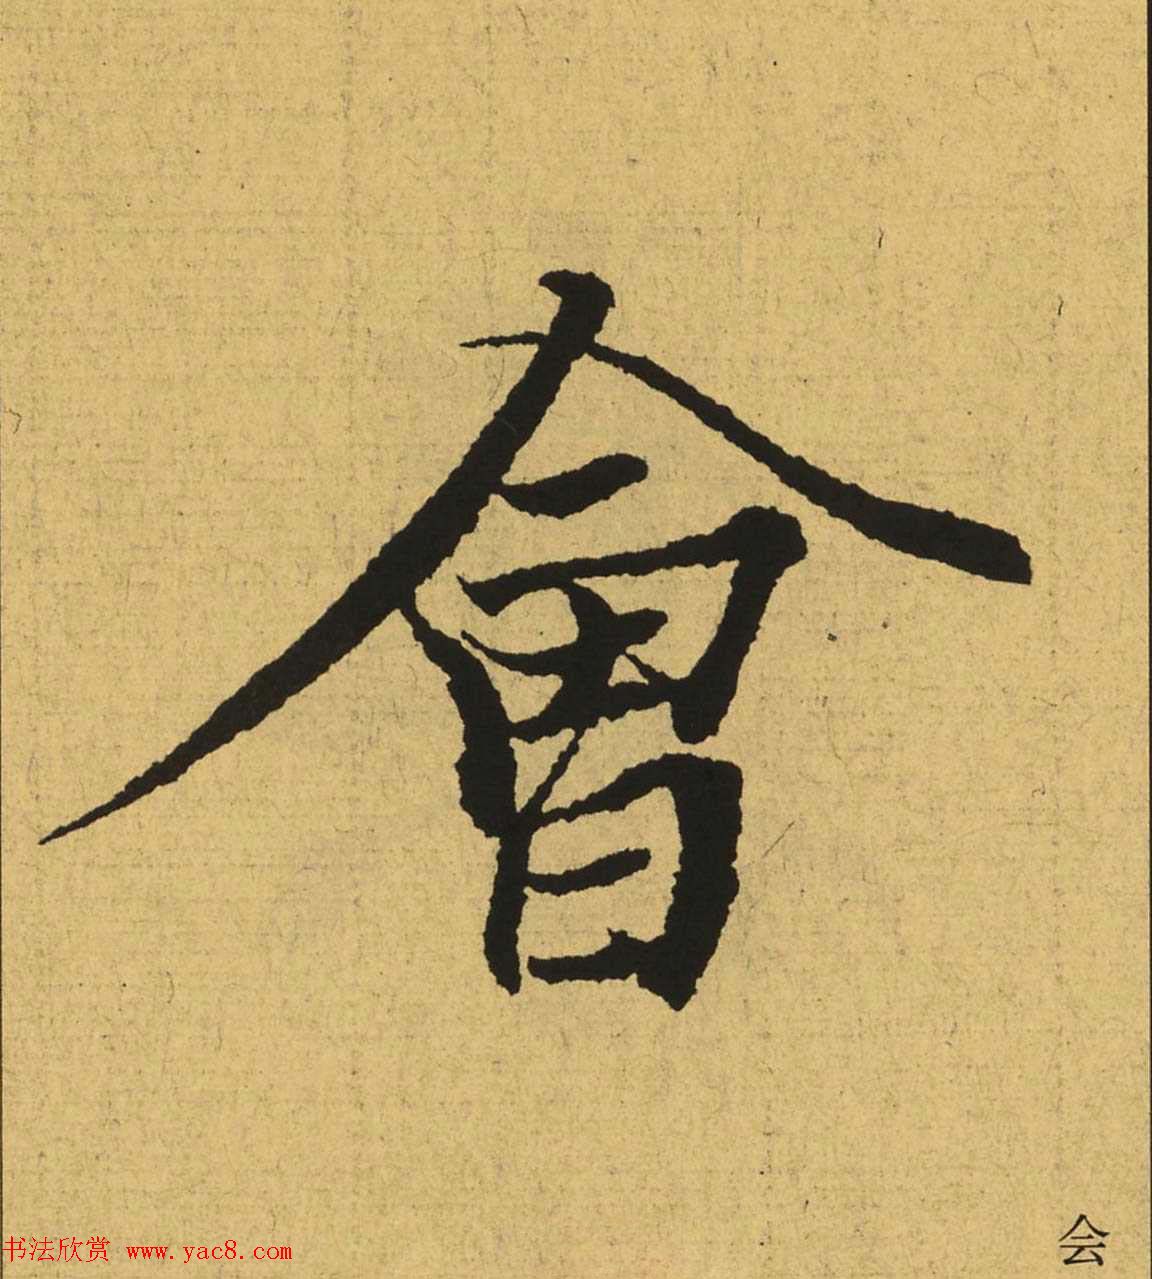 會
会
书法欣赏 www.yac8.com